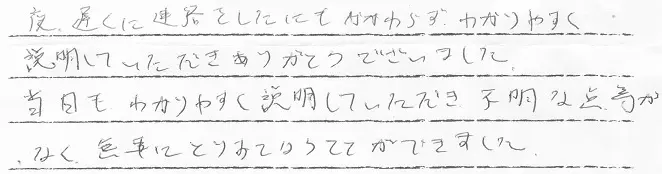 夜、遅くに連絡をしたにもかかわらず、わかりやすく
説明していただきありがとうございました。
当日もわかりやすく説明していただき不明な点等が
なく、無事にとりおこなうことができました。